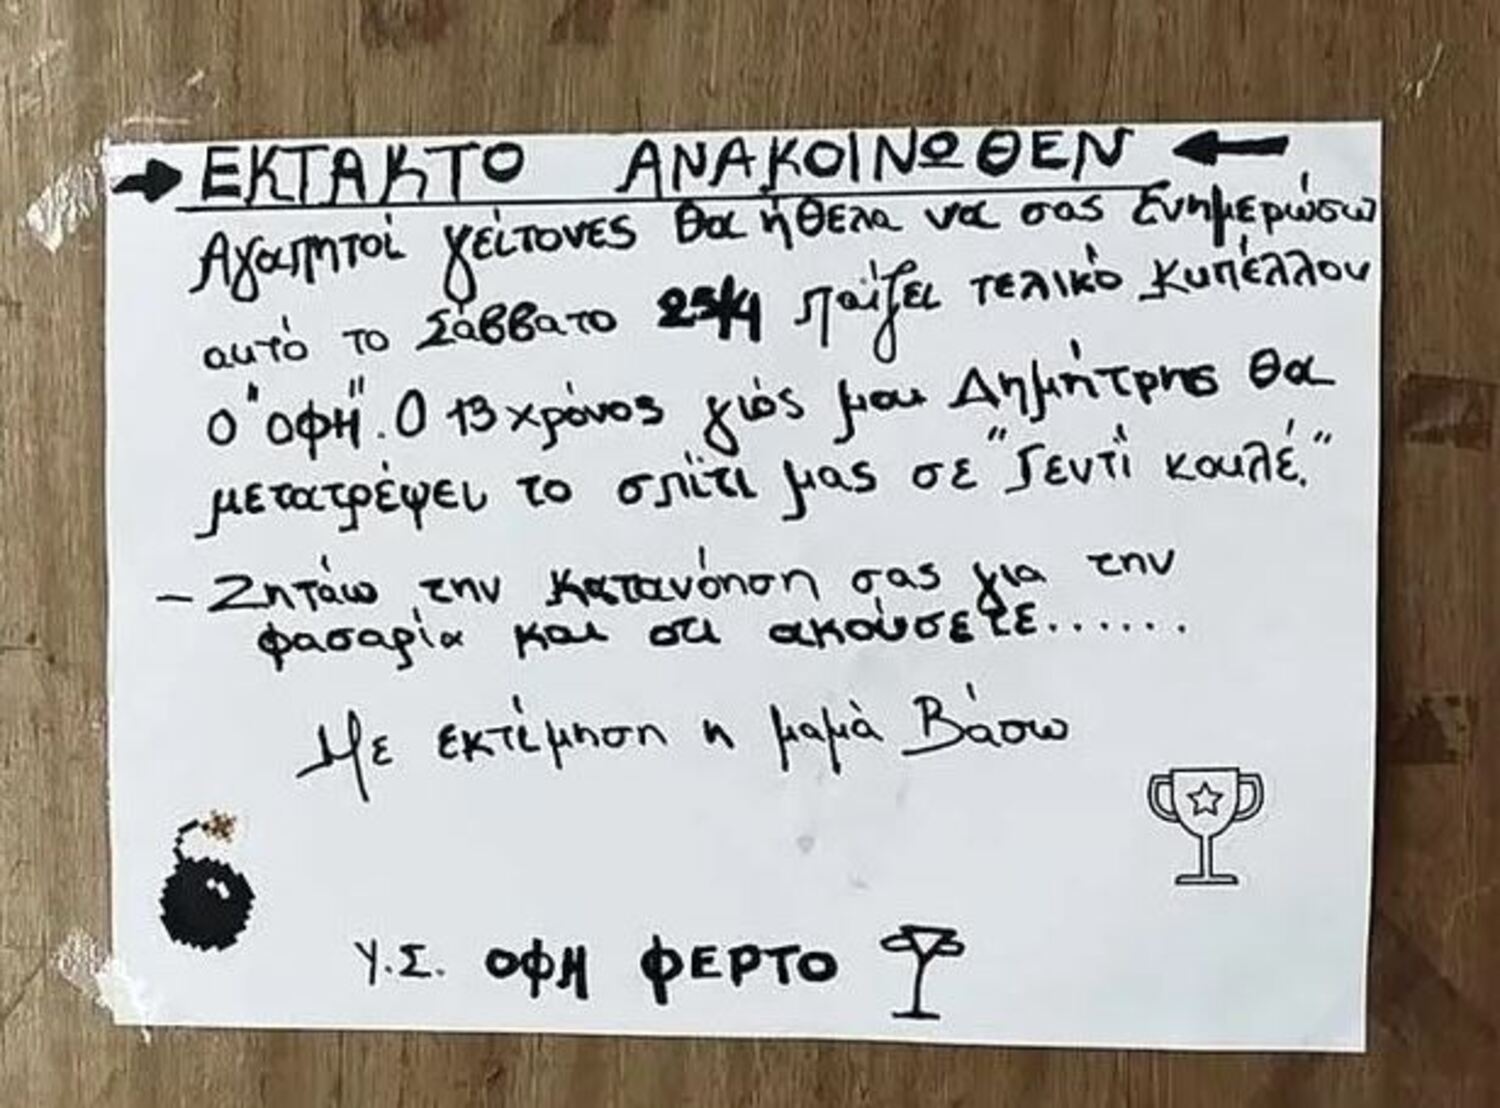 ΕΚΤΑΚΤΟ ΑΝΑΚΟΙΝΩΘΕΝ
Αγαπητοί γείτονες θα ήθελα να σας Ενημερώσω
αυτό το Σάββατο 25/4 παίζει τελικό Κυπέλλου
ο "ΟΦΗ". Ο 13χρόνος γιός μου Δημήτρης θα
μετατρέψει το σπίτι μας σε "Γεντί κουλέ."
- Ζητάω την κατανόηση σας για την
φασαρία και οτι ακούσετε......
Με εκτίμηση η μαμά Βάσω
Υ.Σ. ΟΦΗ ΦΕΡΤΟ